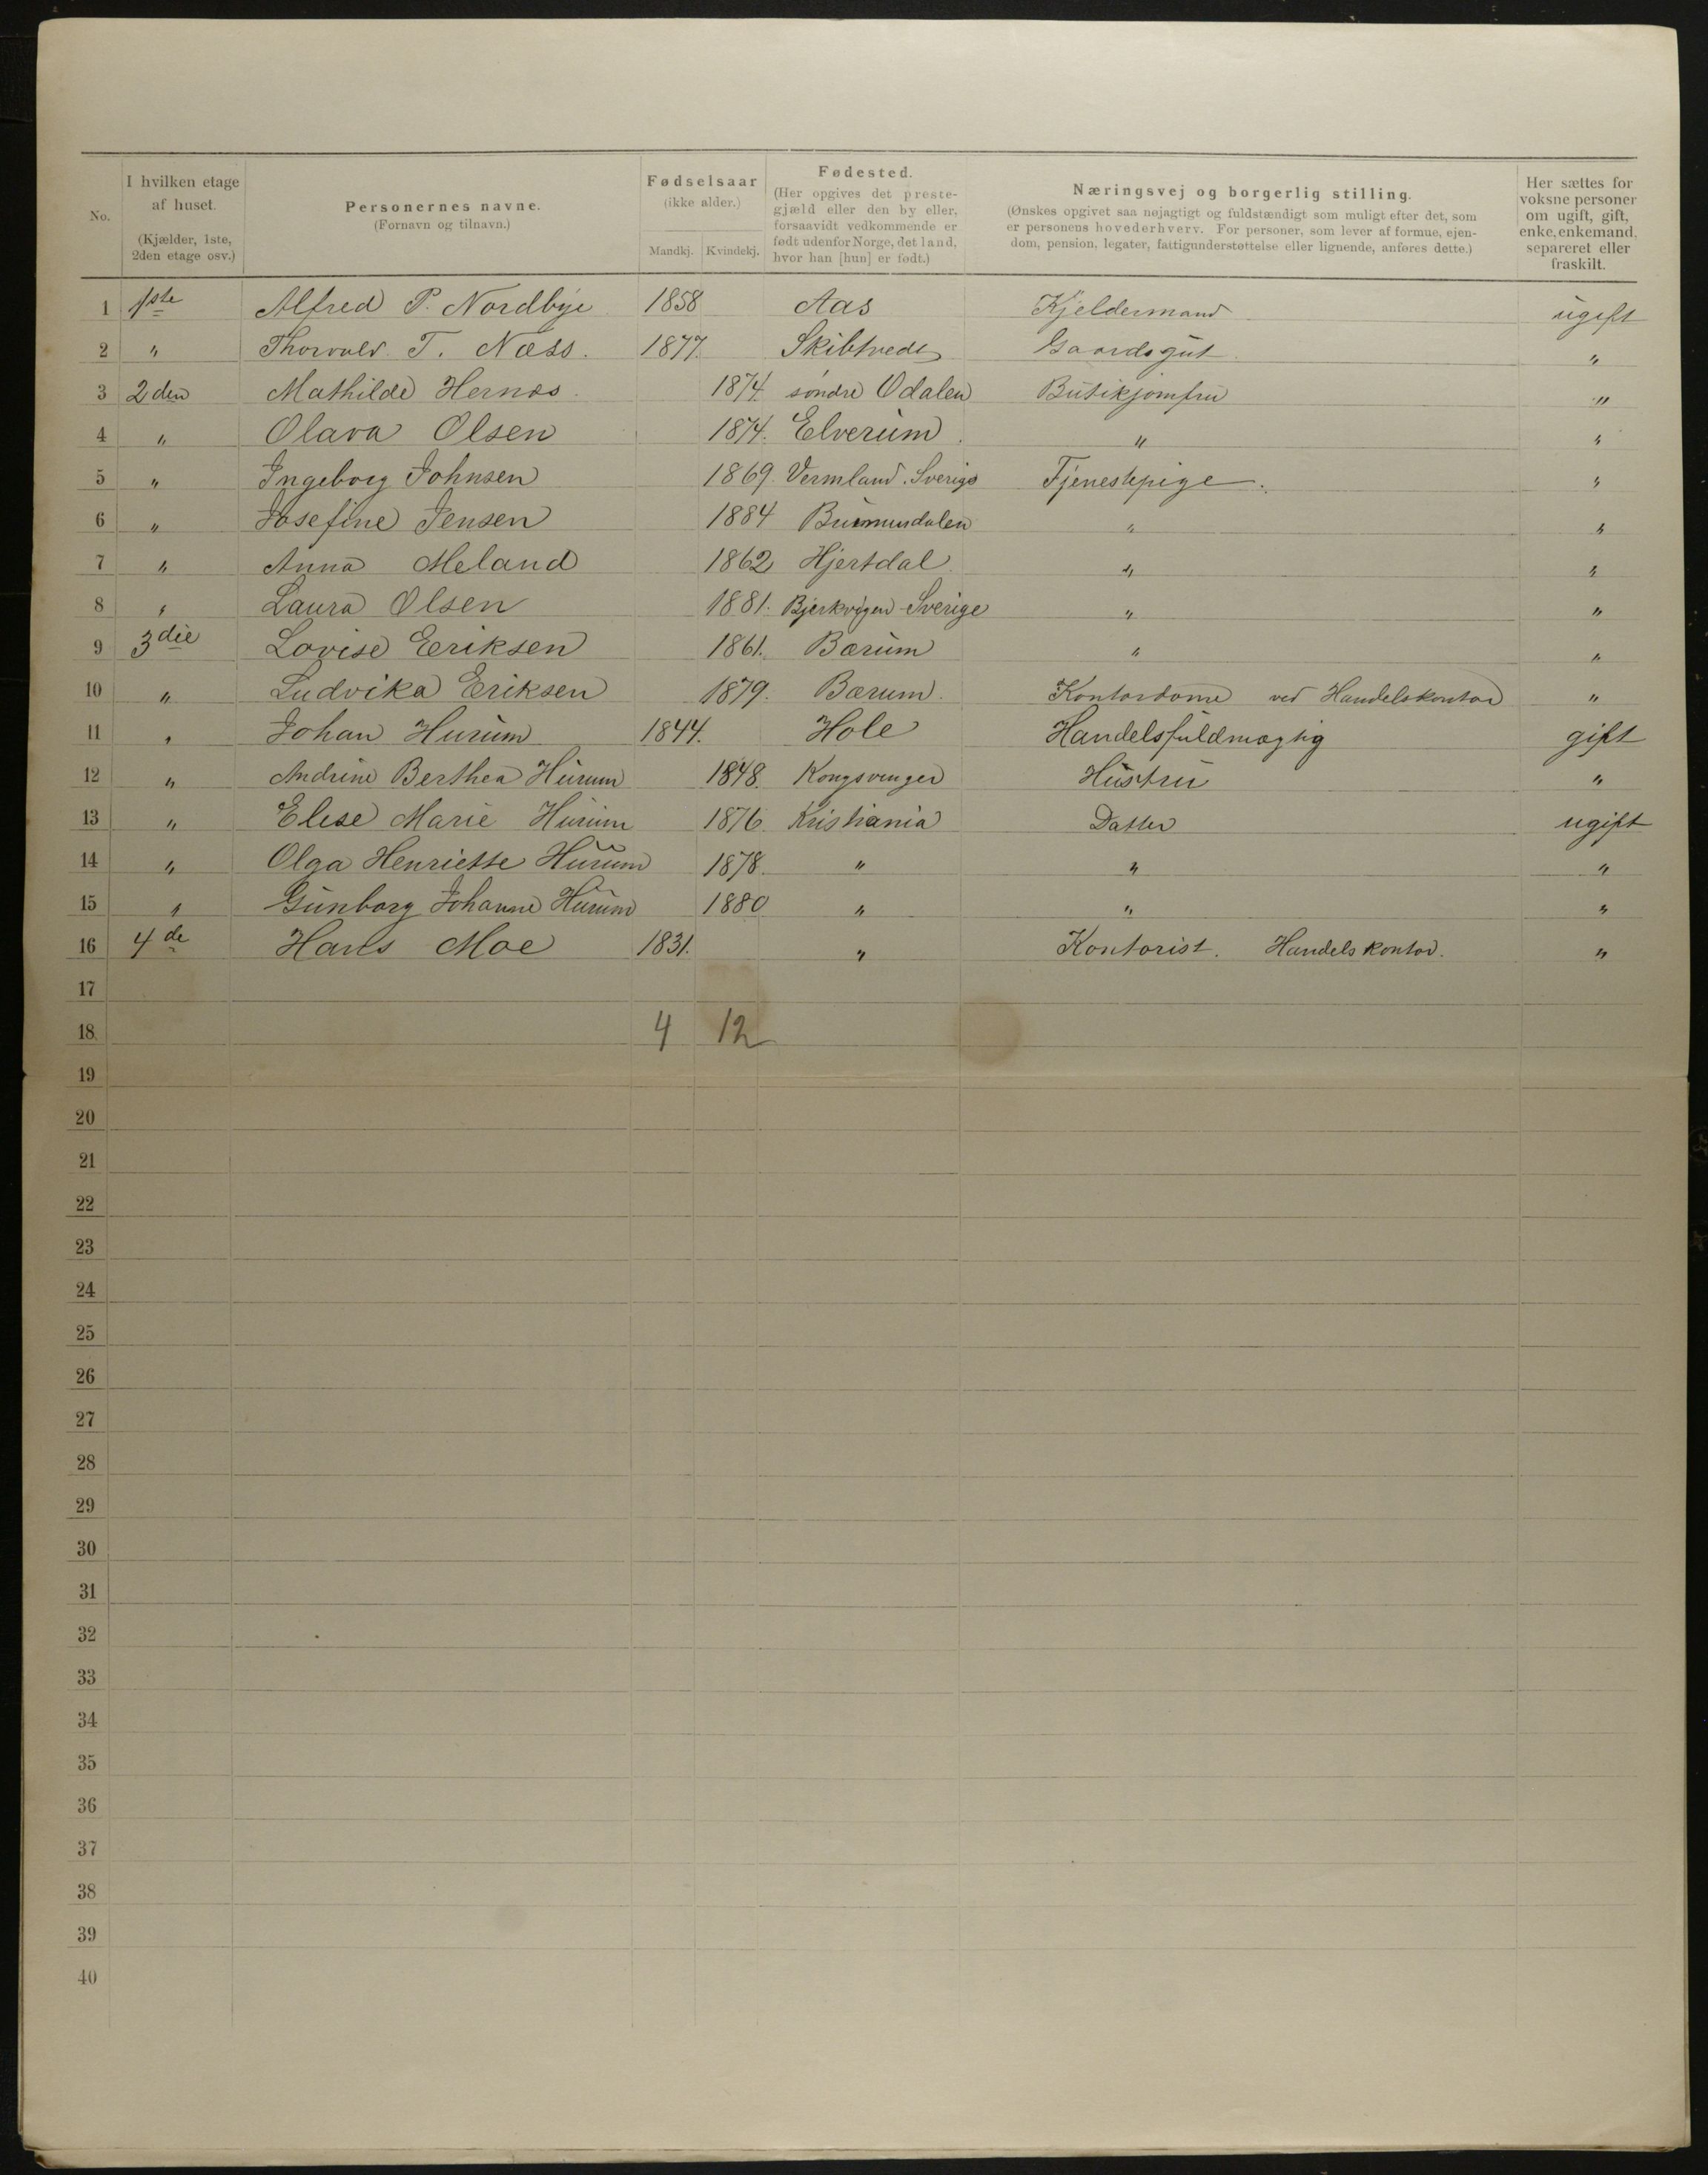 No. | I hvilken etage af huset. (Kjælder, 1ste, 2den etage osv.) | Personernes navne. (Fornavn og tilnavn.) | Fødselsaar (ikke alder.) Mandkj. | Kvindekj. | Fødested. (Her opgives det prestegjæld eller den by eller, forsaavidt vedkommende er født udenfor Norge, det land, hvor han [hun] er født.) | Næringsvej og borgerlig stilling. (Ønskes opgivet saa nøjagtigt og fuldstændigt som muligt efter det, som er personens hovederhverv. For personer, som lever af formue, ejendom, pension, legater, fattigunderstøttelse eller lignende, anføres dette.) | Her sættes for voksne personer om ugift, gift, enke, enkemand, separeret eller fraskilt.
1 | 1ste | Alfred P. Nordbye | 1858 | | Aas | Kjeldermand | ugift
2 | " | Thorvald T. Næss. | 1877. | | Skibtvedt | Gaardsgut. | "
3 | 2den | Mathilde Hernæs. | | 1874. | søndre Odalen | Butikjomfru | "
4 | " | Olava Olsen | | 1874. | Elverum. | " | "
5 | " | Ingeborg Johnsen | | 1869. | Vermland. Sverige | Tjenestepige. | "
6 | " | Josefine Jensen | | 1884 | | " | "
7 | " | Anna Meland | | 1862 | Hjertdal. | " | "
8 | " | Laura Olsen | | 1881. | Bjerkvigen - Sverige | " | "
9 | 3die | Lovise Eriksen | | 1861. | Bærum | " | "
10 | " | Ludvika Eriksen | | 1879. | Bærum. | Kontordame ved Handelskontor | "
11 | " | Johan Hurum | 1844. | | Hole | Handelsfuldmægtig | gift
12 | " | Andrine Berthea Hurum | | 1848. | Kongsvinger | Hustru | "
13 | " | Elise Marie Hurum | | 1876 | Kristiania | Datter | ugift
14 | " | Olga Henriette Hurum | | 1878. | " | " | "
15 | " | Gunborg Johanne Hurum | | 1880 | " | " | "
16 | 4de | Hans Moe | 1831. | | " | Kontorist. Handelskontor. | "
17
18. | | | 4 | 12
19
20
21
22
23
24
25
26
27
28
29
30
31
32
33
34
35
36
37
38
39
40